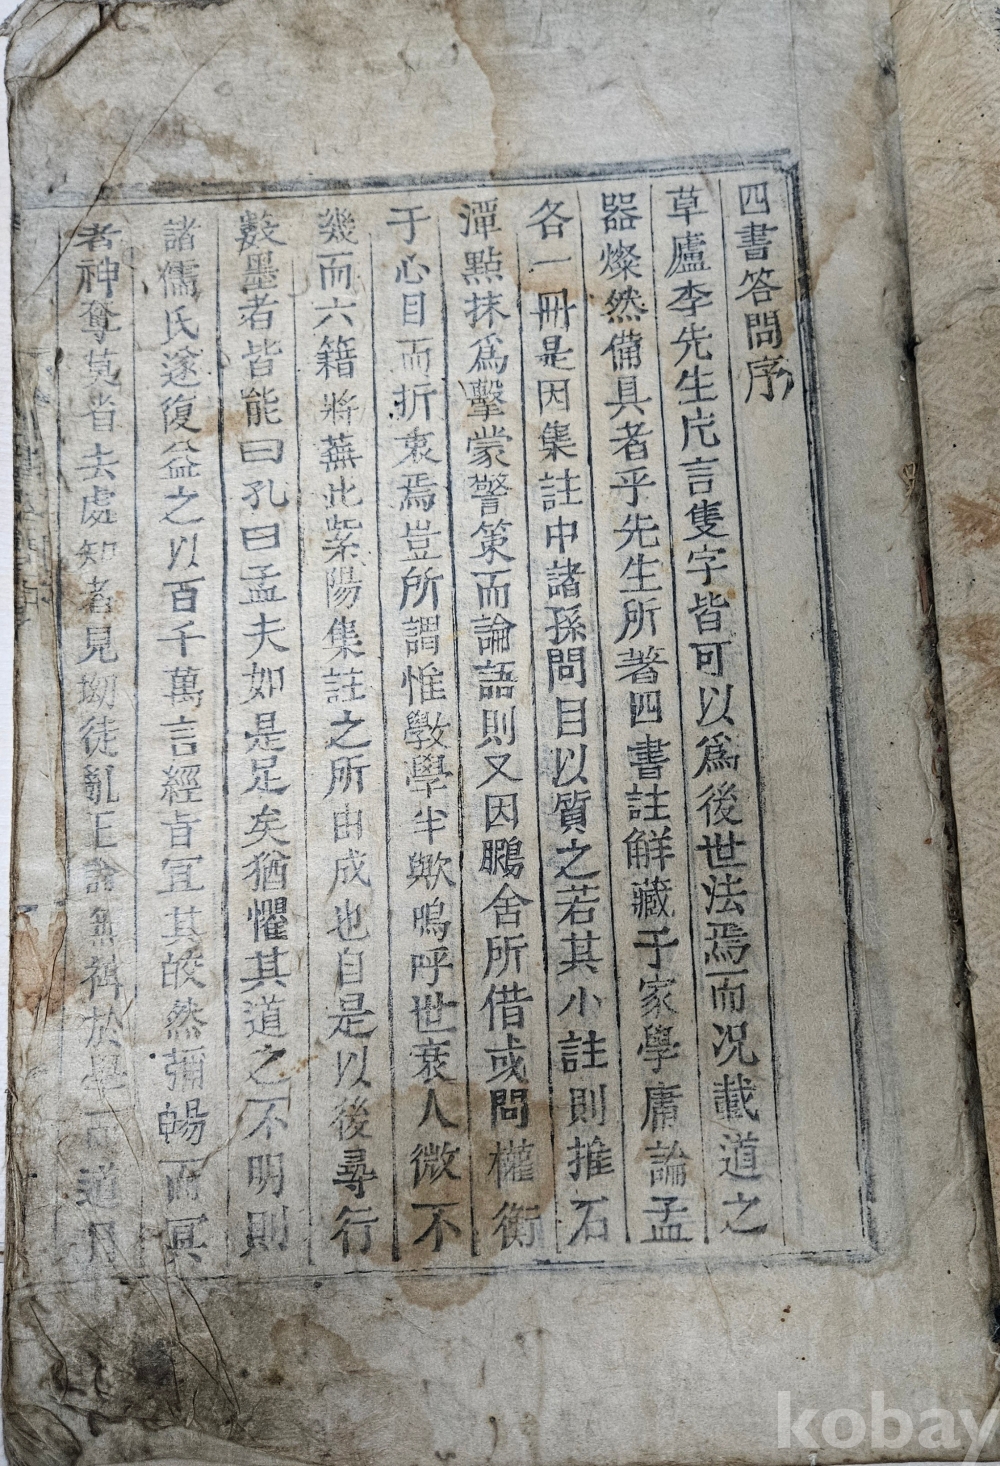 四書答問序
草廬李先生片言隻字皆可以爲後世法焉而况載道之
器燦然備具者乎先生所著四書註解藏于家學庸論孟
各一冊是因集註中諸孫問目以質之若其小註則推石
潭點抹爲擊蒙警策而論語則又因鵬舍所借或問權衡
于心目而折衷焉豈所謂惟斅學半歟嗚呼世衰人微不
幾而六籍將蕪此紫陽集註之所由成也自是以後尋行
數墨者皆能曰孔曰孟夫如是足矣猶懼其道之不明則
諸儒氏遂復益之以百千萬言經旨冝其皎然彌暢而冥
者神奪莫省去處知者見拗徒亂正論無裨於學而道
kobay